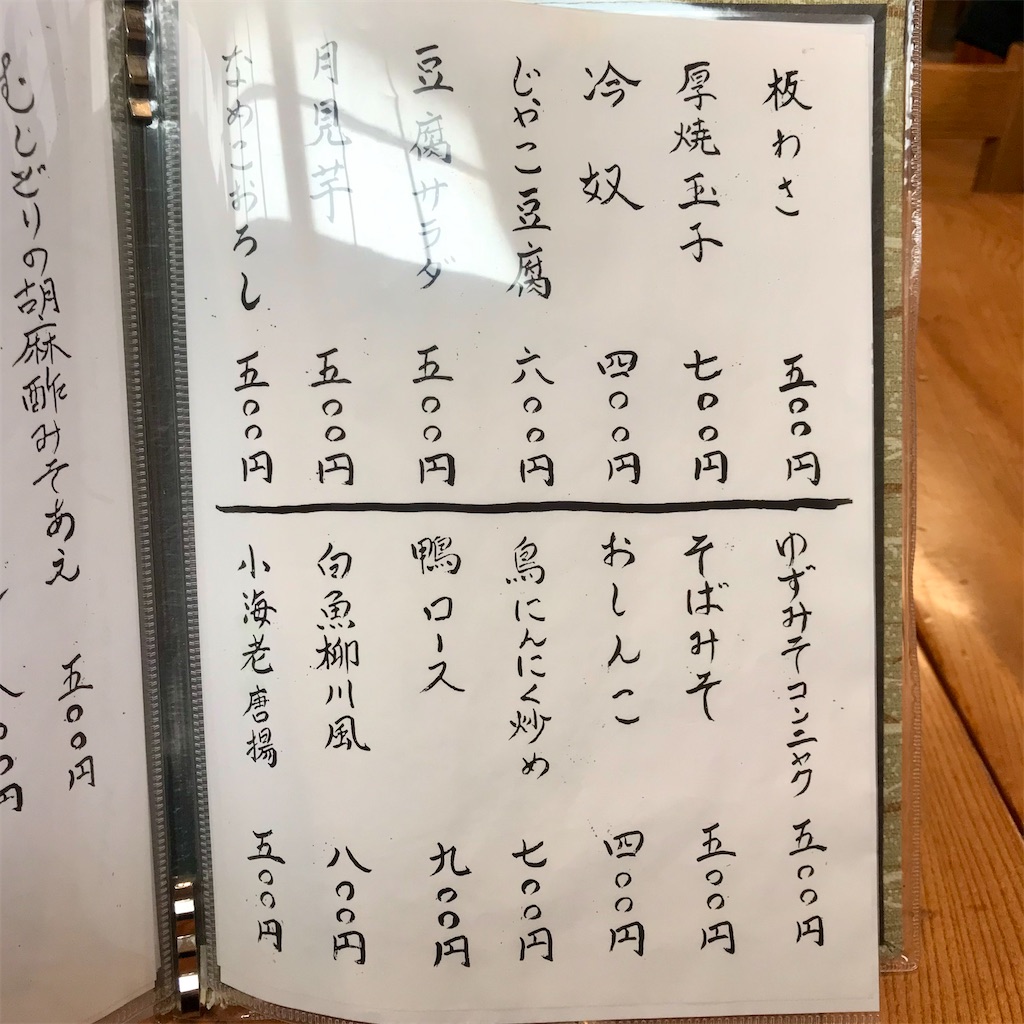 板わさ 五〇〇円
厚焼玉子 七〇〇円
冷奴 四〇〇円
じゃこ豆腐 六〇〇円
豆腐サラダ 五〇〇円
月見芋 五〇〇円
なめこおろし 五〇〇円
ゆずみそコンニャク 五〇〇円
そばみそ 五〇〇円
おしんこ 四〇〇円
鳥にんにく炒め 七〇〇円
鴨ロース 九〇〇円
白魚柳川風 八〇〇円
小海老唐揚 五〇〇円
むじどりの胡麻酢みそあえ 五〇〇円